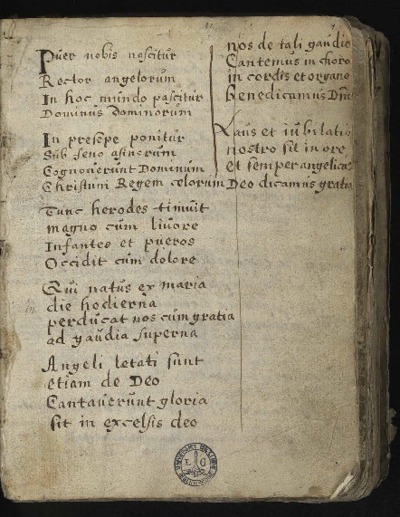 Puer nobis nascitur
Rector angelorum
In hoc mundo pascitur
Dominus Dominorum
In presepe ponitur
Sub feno asinorum
Cognoverunt Dominum
Christum Regem celorum
Tunc herodes timuit
magno cum livore
Infantes et pueros
Occidit cum dolore
Qui natus ex maria
die hodierna
perducat nos cum gratia
ad gaudia superna
Angeli letati sunt
etiam de Deo
Cantaverunt gloria
sit in excelsis deo
nos de tali gaudio
Cantemus in choro
in cordis et organo
benedicamus Dno
Laus et iubilatio
nostro sit in ore
et semper angelicas
Deo dicamus gratia